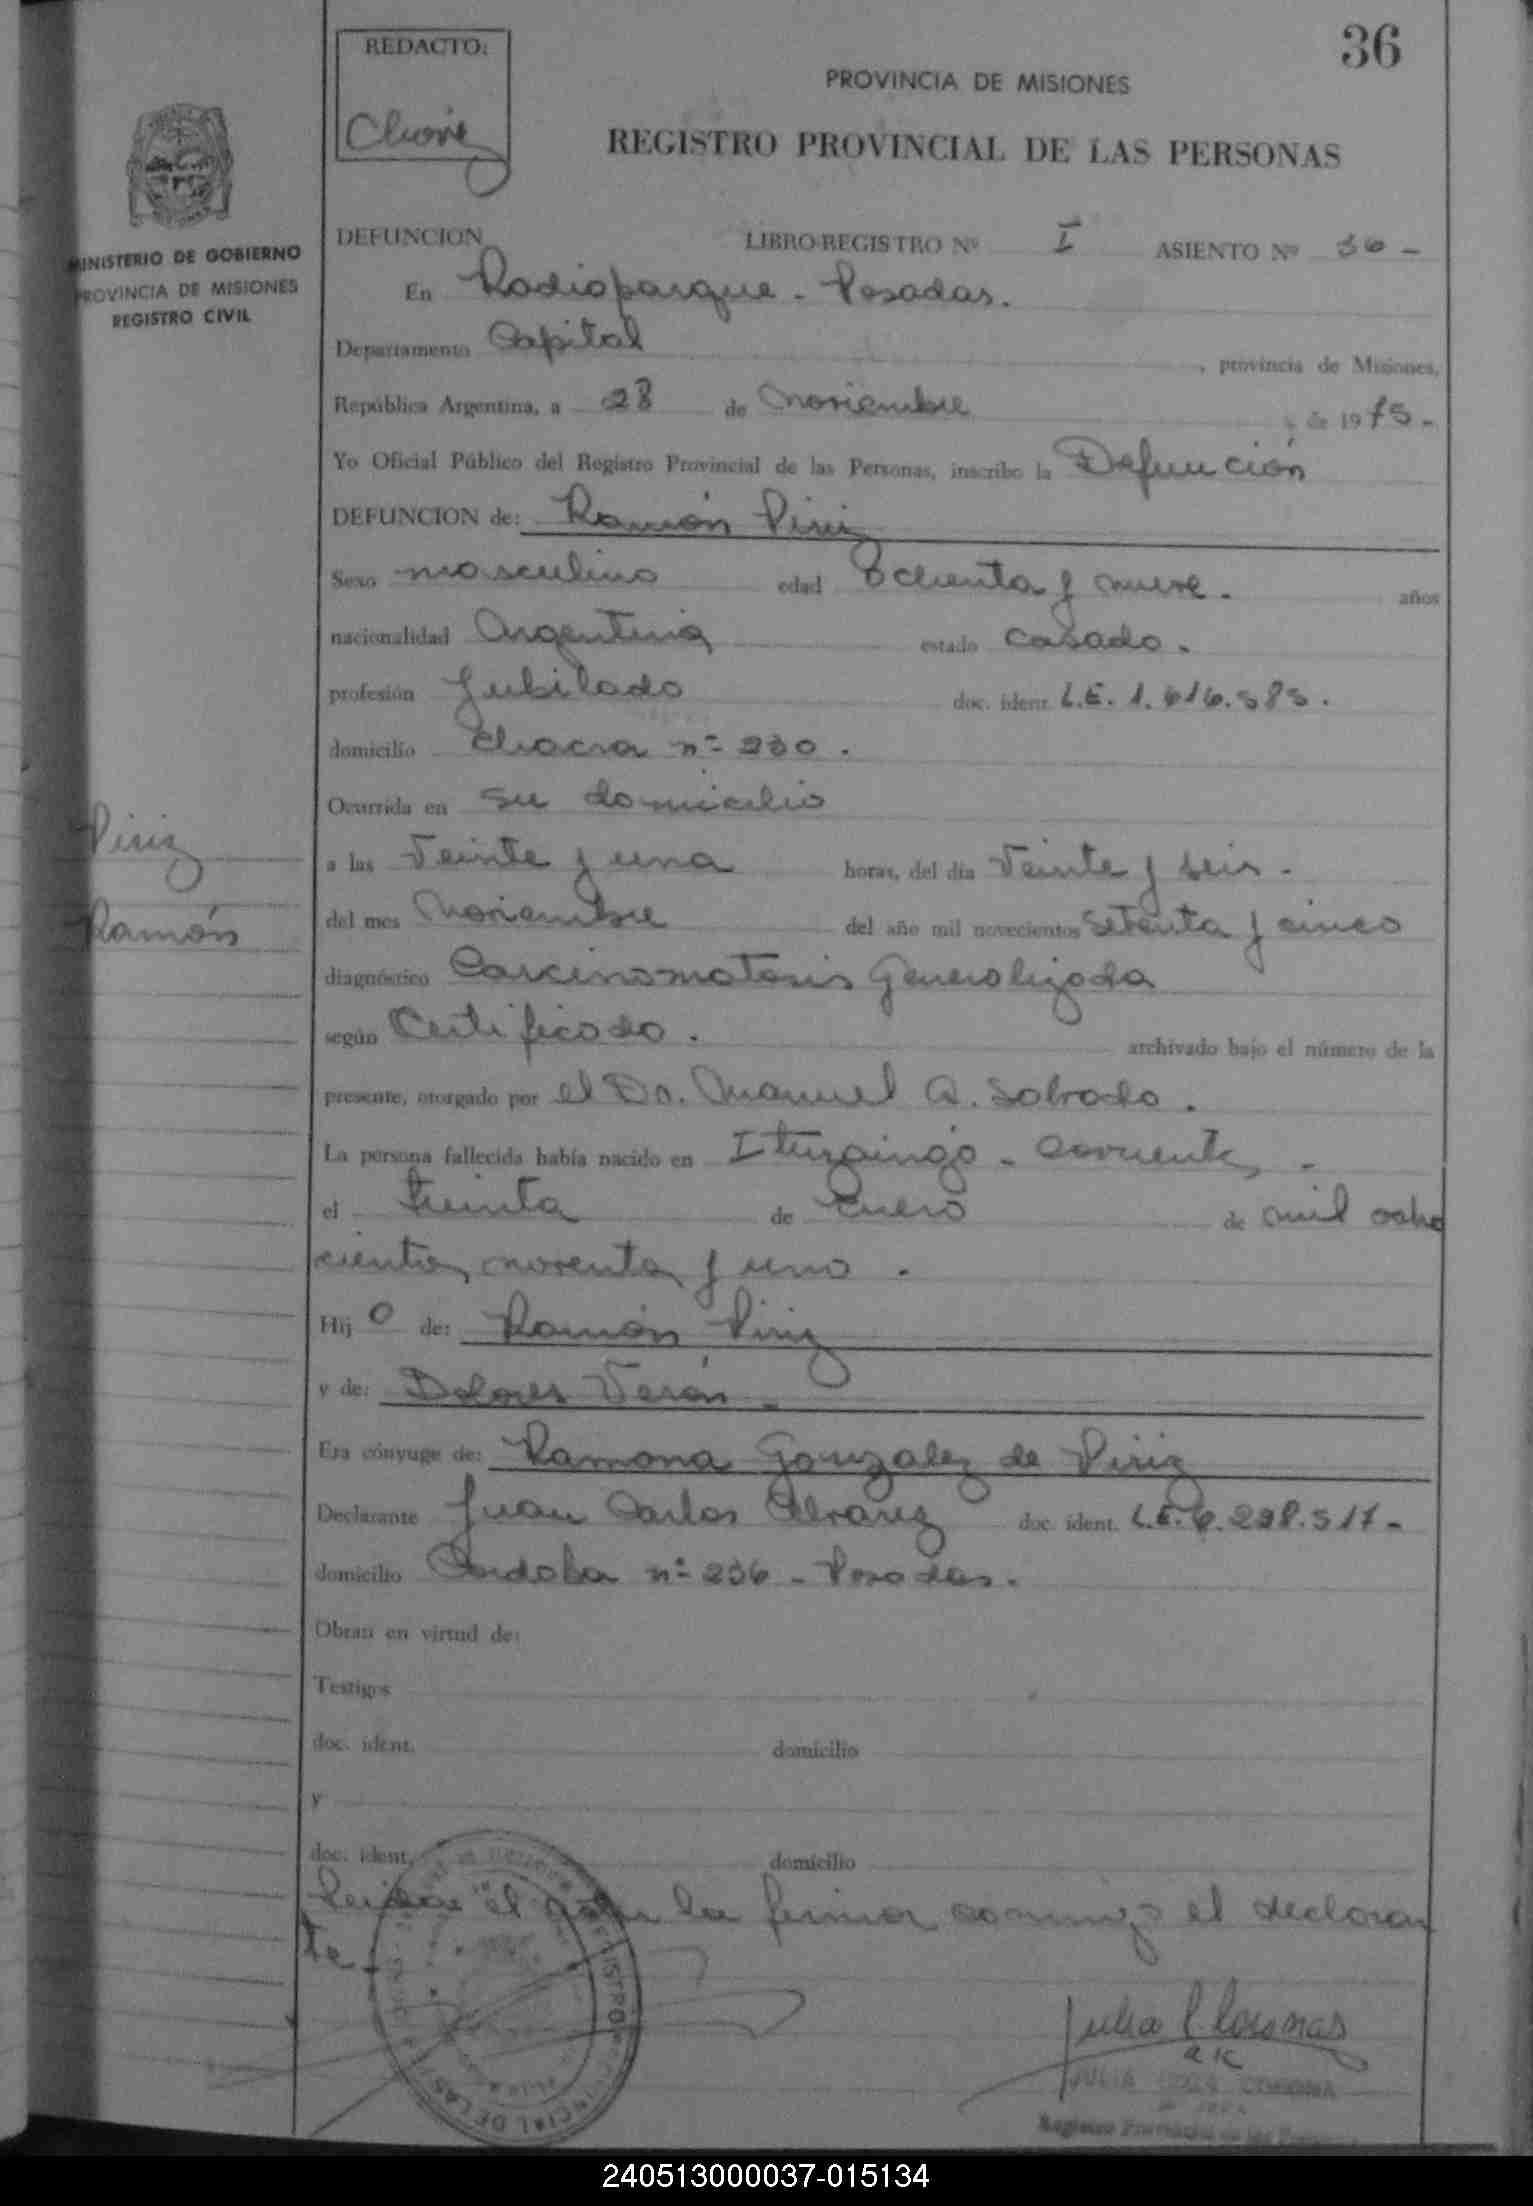 36
REDACTO:
PROVINCIA DE MISIONES
REGISTRO PROVINCIAL DE LAS PERSONAS
MINISTERIO DE GOBIERNO
PROVINCIA DE MISIONES
REGISTRO CIVIL
DEFUNCION LIBRO-REGISTRO Nº I ASIENTO Nº 36 -
En Radioparque - Posadas.
Departamento Capital , provincia de Misiones,
República Argentina, a 28 de noviembre de 1975-
Yo Oficial Público del Registro Provincial de las Personas, inscribo la Defunción
DEFUNCION de: Ramón Piriz
Sexo masculino edad Ochenta y nueve. años
nacionalidad Argentina estado casado.
profesión Jubilado doc. ident. L.E. 1.616.585.
domicilio Chacra nº 230.
Ocurrida en su domicilio
Piriz
a las Veinte y una horas, del día Veinte y seis.
Ramón
del mes Noviembre del año mil novecientos setenta y cinco
diagnóstico Carcinomatosis Generalizada
según Certificado. archivado bajo el número de la
presente, otorgado por el Dr. Manuel A. Sobrado.
La persona fallecida había nacido en Ituzaingó - Corrientes -
el treinta de enero de mil ocho
cientos noventa y uno.
Hij o de: Ramón Piriz
y de: Dolores Verón -
Era cónyuge de: Ramona Gonzalez de Piriz
Declarante Juan Carlos Alvarez doc. ident. L.E. 6.298.517-
domicilio Cordoba nº 236 - Posadas.
Obran en virtud de:
Testigos
doc. ident. domicilio
y
doc. ident. domicilio
Leída el acta la firma conmigo el declaran
te-
JULIA CORONA
Registro Provincial de las Personas
240513000037-015134